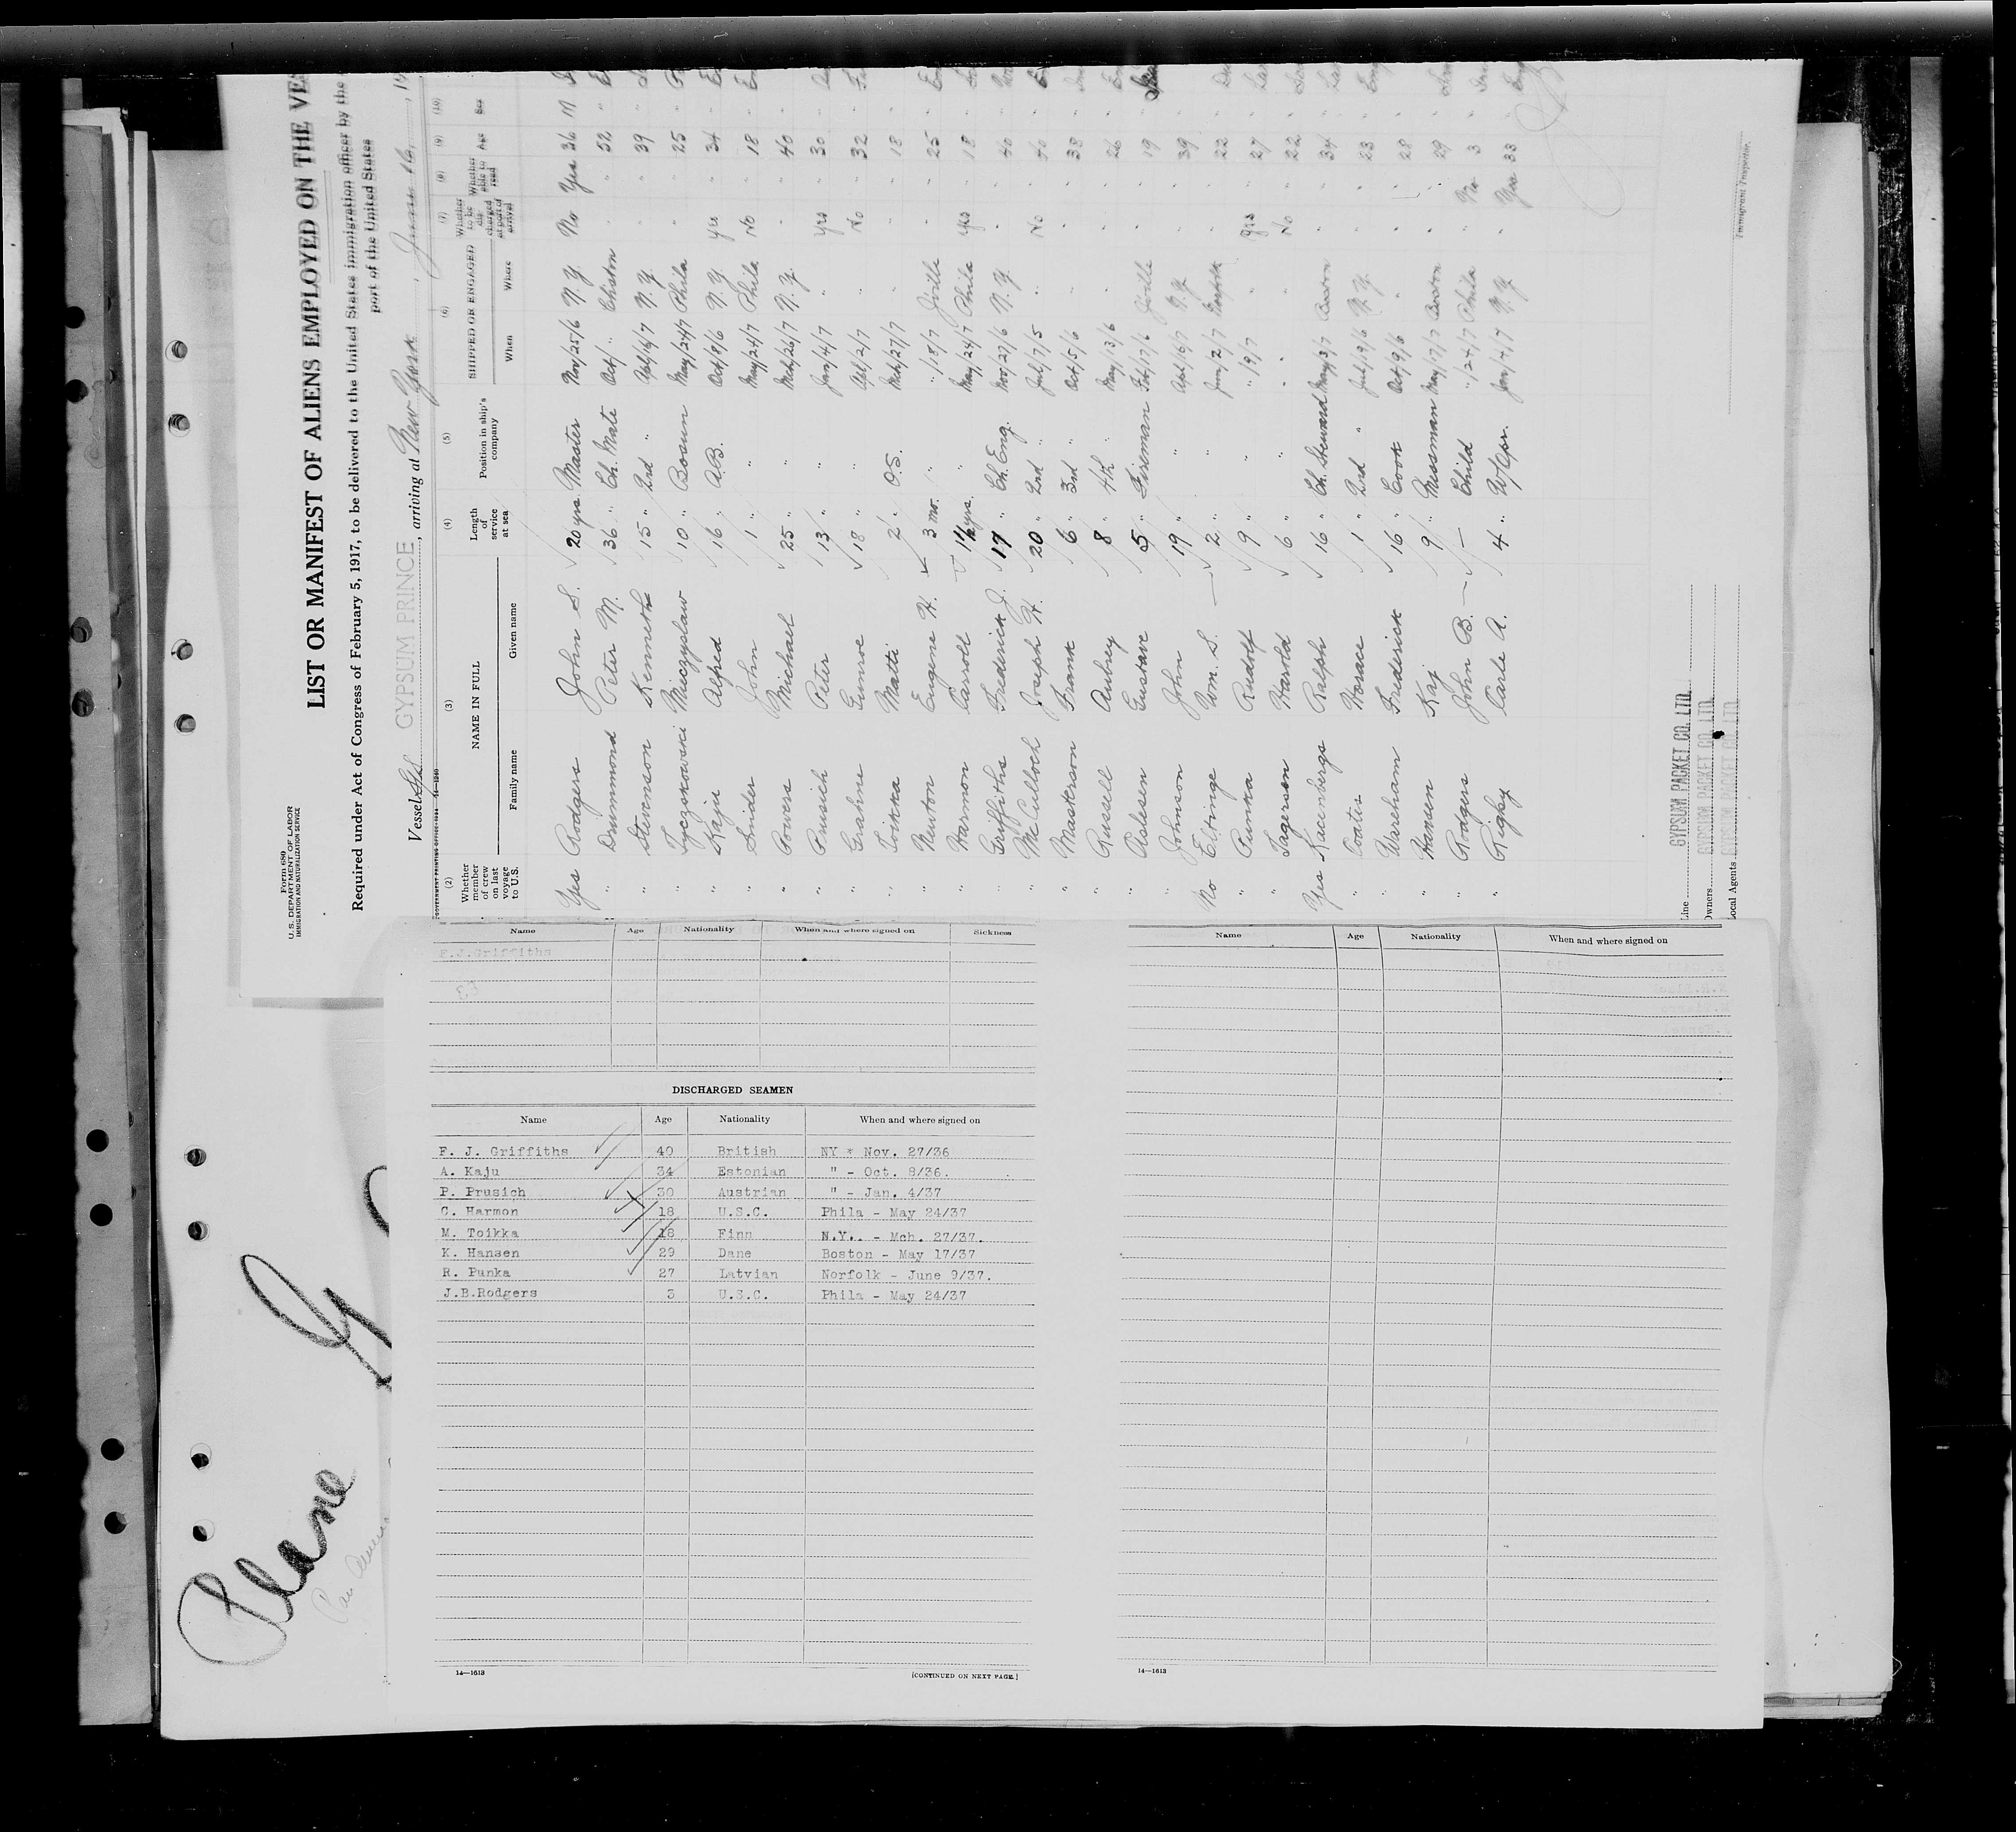 Form 680
U. S. DEPARTMENT OF LABOR
IMMIGRATION AND NATURALIZATION SERVICE
LIST OR MANIFEST OF ALIENS EMPLOYED ON THE VES
Required under Act of Congress of February 5, 1917, to be delivered to the United States immigration officer by the
port of the United States
Vessel GYPSUM PRINCE, arriving at New York, June 16, 19
(2) (3) (4) (5) (6) (7) (8) (9) (10)
Whether member of crew on last voyage to U.S. NAME IN FULL Family name Given name Length of service at sea Position in ship's company SHIPPED OR ENGAGED When Where Whether to be discharged at port of arrival Whether able to read Age Sex
Yes Rodgers John S. 20 yrs Master Nov/25/6 N. Y. No Yes 36 M
" Drummond Peter M. 36 " Ch. Mate Oct/ " 52 "
" Stevenson Kenneth 15 " 2nd " Apl/16/7 N. Y. " " 39 "
" Mieczyslaw 10 " Bosun May/24/7 Phila " " 25 "
" Kaju Alfred 16 " A.B. Oct/8/6 N. Y. Yes " 34 "
" Snider John 1 " " May/24/7 Phila No " 18 "
" Powers Michael 25 " " Mch/26/7 N. Y. " " 40 "
" Prusich Peter 13 " " Jan/4/7 " Yes " 30 "
" Grahne Gunroe 18 " " Apl/2/7 " No " 32 "
" Toikka Matti 2 " O.S. Mch/27/7 " " " 18 "
" Newton Eugene H. 3 mo. " " /18/7 " " 25 "
" Harmon Carroll 1½ yrs. " May/24/7 Phila Yes " 18 "
" Griffiths Frederick J. 17 " Ch. Eng. Nov/27/6 N. Y. " " 40 "
" McCulloch Joseph H. 20 " 2nd " Jul/7/5 " No " 40 "
" Masterson Frank 6 " 3rd " Oct/5/6 " " " 38 "
" Russell Aubrey 8 " 4th " May/13/6 " " " 26 "
" Aslesen Gustave 5 " Fireman Feb/17/6 " " 19 "
" Johnson John 19 " " Apl/16/7 N. Y. " " 39 "
No Eltinge Wm. S. 2 " " Jun/2/7 Norfolk " " 22 "
" Punka Rudolf 9 " " " /9/7 " Yes " 27 "
" Tagersen Harold 6 " " " " No " 22 "
Yes Kacenbergs Ralph 16 " Ch. Steward May/3/7 Boston " " 34 "
" Coates Horace 1 " 2nd " Jul/9/6 N. Y. " " 23 "
" Wareham Frederick 16 " Cook Oct/9/6 " " " 28 "
" Hansen Kaj 9 " Messman May/17/7 Boston " " 29 "
" Rodgers John B. — Child " /24/7 Phila " No 3 "
" Rigby Carle A. 4 " W/Opr. Jan/4/7 N. Y. " Yes 33 "
Line GYPSUM PACKET CO. LTD.
Owners GYPSUM PACKET CO. LTD.
Local Agents GYPSUM PACKET CO. LTD.
Immigrant Inspector.
Name Age Nationality When and where signed on Sickness
F.J.Griffiths
DISCHARGED SEAMEN
Name Age Nationality When and where signed on
F. J. Griffiths 40 British NY * Nov. 27/36
A. Kaju 34 Estonian " - Oct. 8/36.
P. Prusich 30 Austrian " - Jan. 4/37
C. Harmon 18 U.S.C. Phila - May 24/37
M. Toikka 18 Finn N.Y.. - Mch. 27/37.
K. Hansen 29 Dane Boston - May 17/37
R. Punka 27 Latvian Norfolk - June 9/37.
J.B.Rodgers 3 U.S.C. Phila - May 24/37
14—1613 [CONTINUED ON NEXT PAGE.]
Name Age Nationality When and where signed on
14—1613
Plane